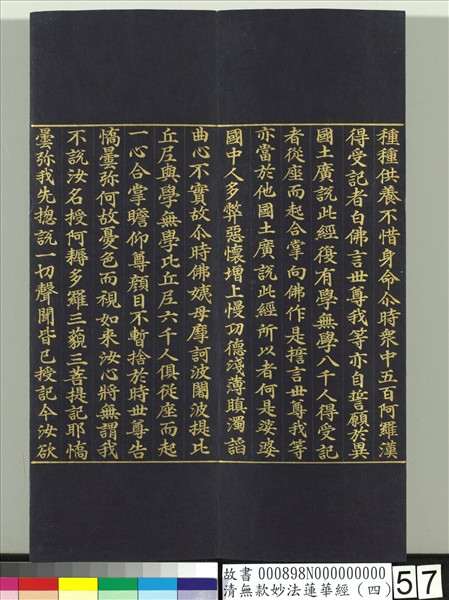 種種供養不惜身命尒時衆中五百阿羅漢
得受記者白佛言世尊我等亦自誓願於異
國土廣說此經復有學無學八千人得受記
者從座而起合掌向佛作是誓言世尊我等
亦當於他國土廣說此經所以者何是娑婆
國中人多弊惡懷增上慢功德淺薄瞋濁諂
曲心不實故尒時佛姨母摩訶波闍波提比
丘尼與學無學比丘尼六千人俱從座而起
一心合掌瞻仰尊顔目不暫捨於時世尊告
憍曇弥何故憂色而視如來汝心將無謂我
不說汝名授阿耨多羅三藐三菩提記耶憍
曇弥我先揔說一切聲聞皆已授記今汝欲
故書 000898N000000000
清無款妙法蓮華經(四)
57